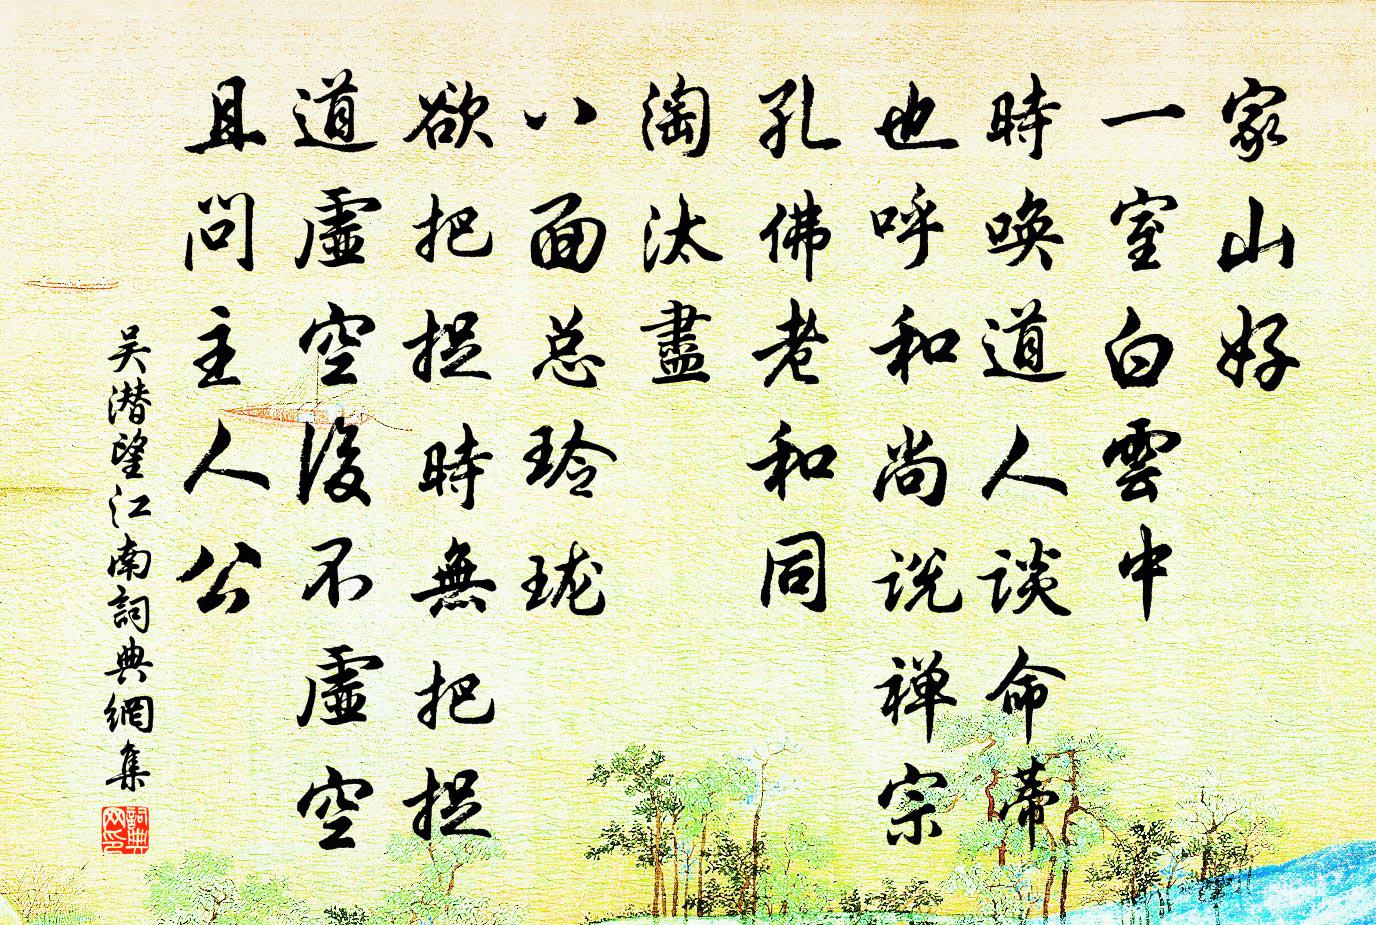 家山好
一室白雲中
時喚道人談命蒂
也呼和尚説禅宗
孔佛老和同
淘汰盡
八面总玲珑
欲把捉時無把捉
道虛空後不虛空
且問主人公
吴潜望江南詞典網集
詞典网印